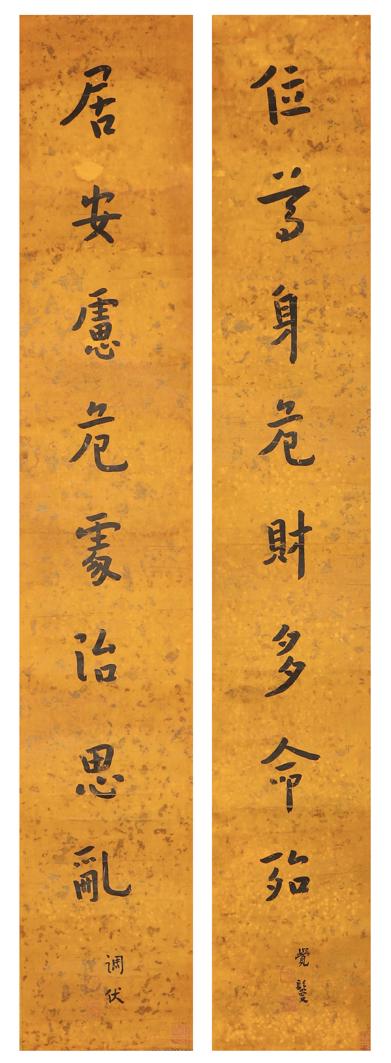 位尊身危財多命殆
覺
居安慮危處治思亂
調伏